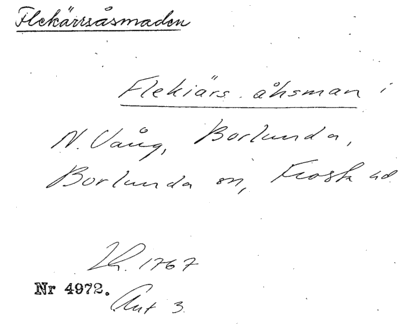 Flekärrsåsmaden
Flekiärs åhsman i
N. Vång, Borlunda,
Borlunda sn, Frosta hd
Lh. 1767
Nr 4972.
Akt 3